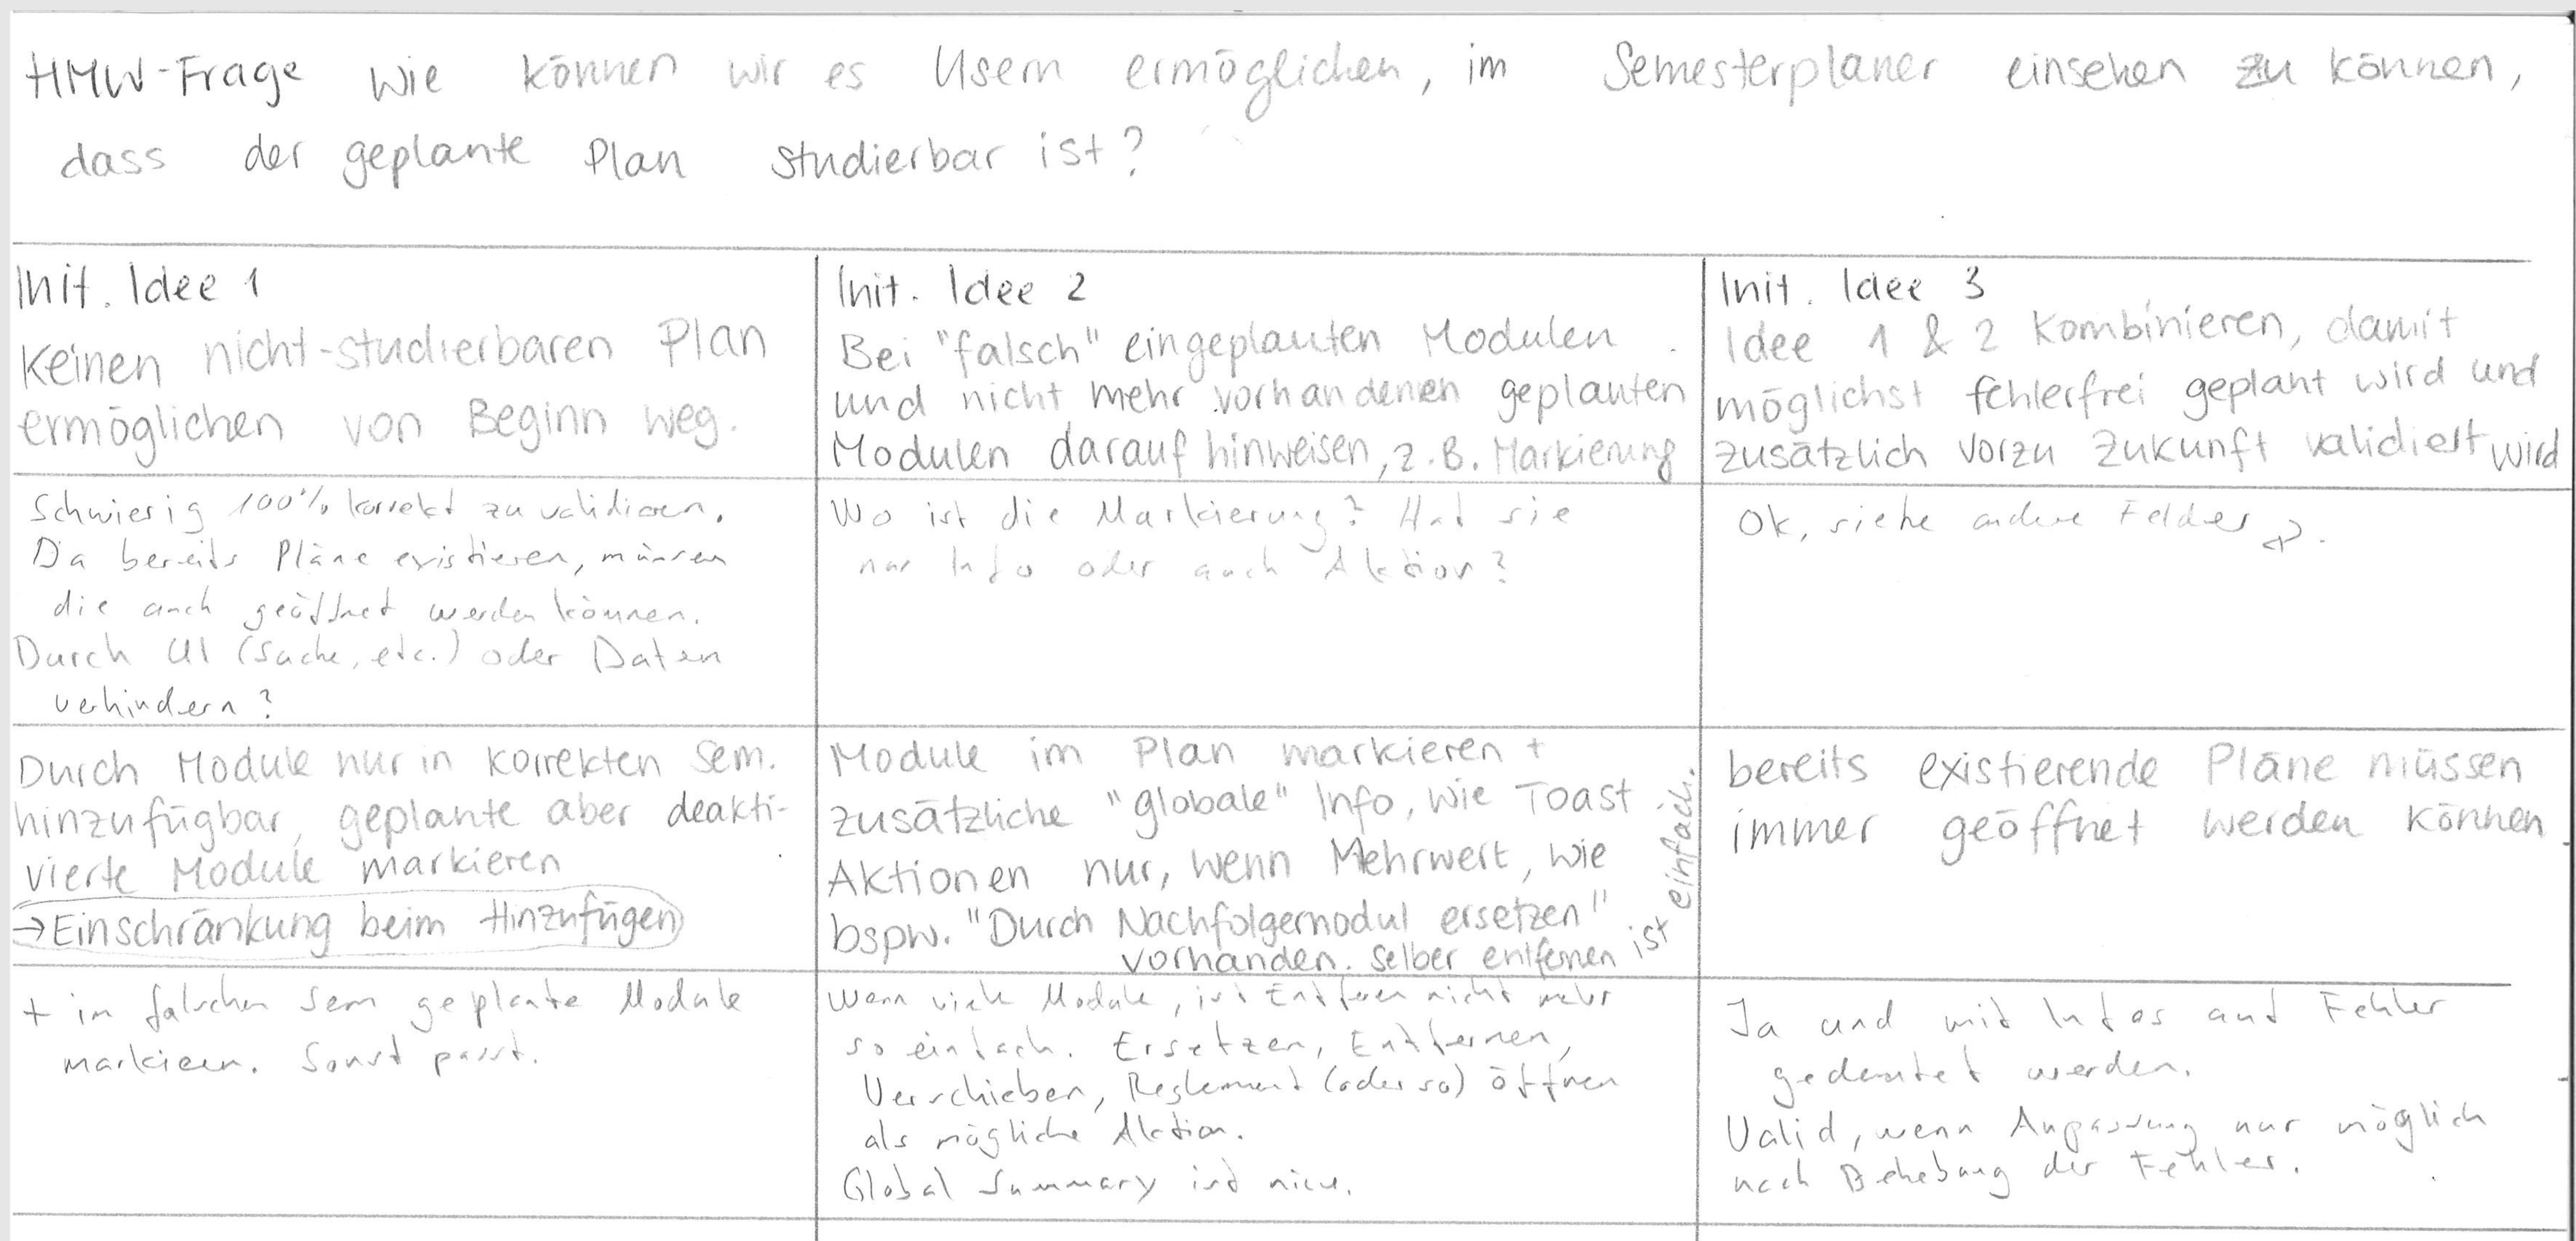 HMW-Frage Wie können wir es Usern ermöglichen, im Semesterplaner einsehen zu können,
dass der geplante Plan studierbar ist?
Init. Idee 1
Keinen nicht-studierbaren Plan
ermöglichen von Beginn weg.
Init. Idee 2
Bei "falsch" eingeplanten Modulen
und nicht mehr vorhandenen geplanten
Modulen darauf hinweisen, z.B. Markierung
Init. Idee 3
Idee 1 & 2 kombinieren, damit
möglichst fehlerfrei geplant wird und
zusätzlich vorzu Zukunft validiert wird
Schwierig 100% korrekt zu validieren.
Da bereits Pläne existieren, müssen
die auch geöffnet werden können.
Durch UI (Suche, etc.) oder Daten
verhindern?
Wo ist die Markierung? Hat sie
nur Info oder auch Aktion?
Ok, siehe andere Felder
Durch Module nur in korrekten Sem.
hinzufügbar, geplante aber deakti-
vierte Module markieren
→ Einschränkung beim Hinzufügen
Module im Plan markieren +
zusätzliche "globale" Info, wie Toast
Aktionen nur, wenn Mehrwert, wie
bspw. "Durch Nachfolgermodul ersetzen"
vorhanden. Selber entfernen ist einfach.
bereits existierende Pläne müssen
immer geöffnet werden können
+ in falschen Sem geplante Module
markieren. Sonst passt.
Wenn viele Module, ist Entfernen nicht mehr
so einfach. Ersetzen, Entfernen,
Verschieben, Reglement (oder so) öffnen
als mögliche Aktion.
Global Summary ist nice.
Ja und mit Infos auf Fehler
gedeutet werden.
Valid, wenn Anpassung nur möglich
nach Behebung der Fehler.